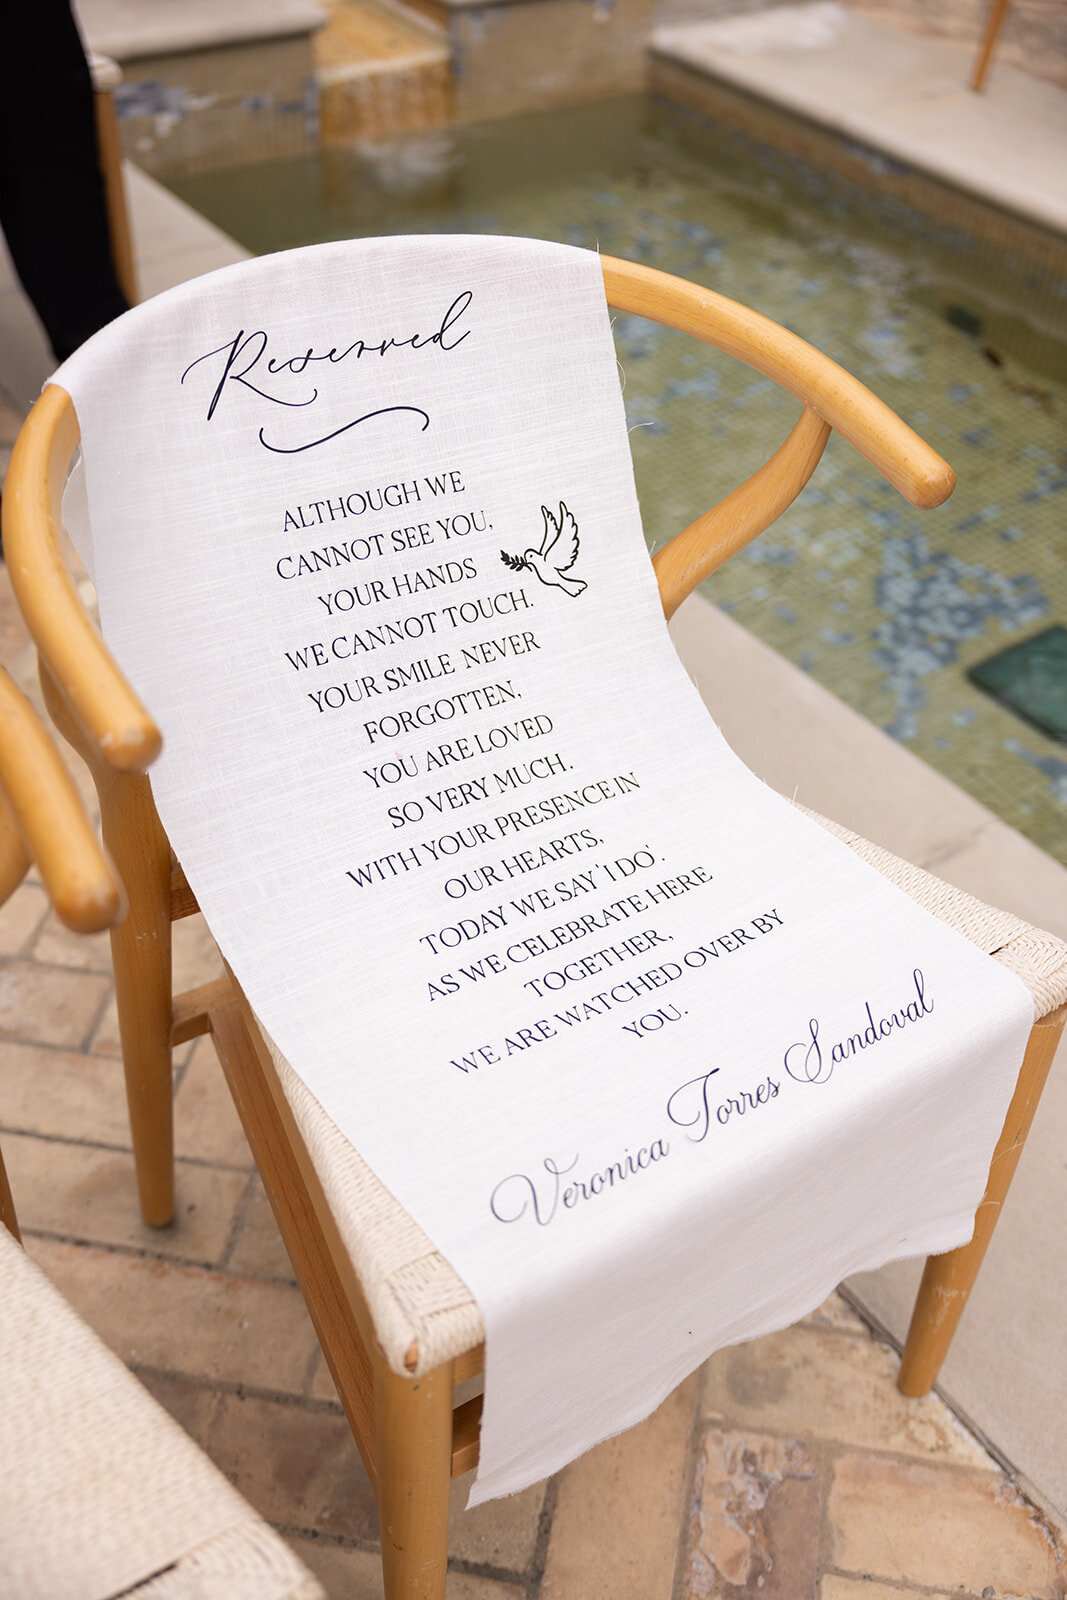 Reserved
ALTHOUGH WE
CANNOT SEE YOU,
YOUR HANDS
WE CANNOT TOUCH.
YOUR SMILE NEVER
FORGOTTEN,
YOU ARE LOVED
SO VERY MUCH,
WITH YOUR PRESENCE IN
OUR HEARTS,
TODAY WE SAY 'I DO'.
AS WE CELEBRATE HERE
TOGETHER,
WE ARE WATCHED OVER BY
YOU.
Veronica Torres Sandoval